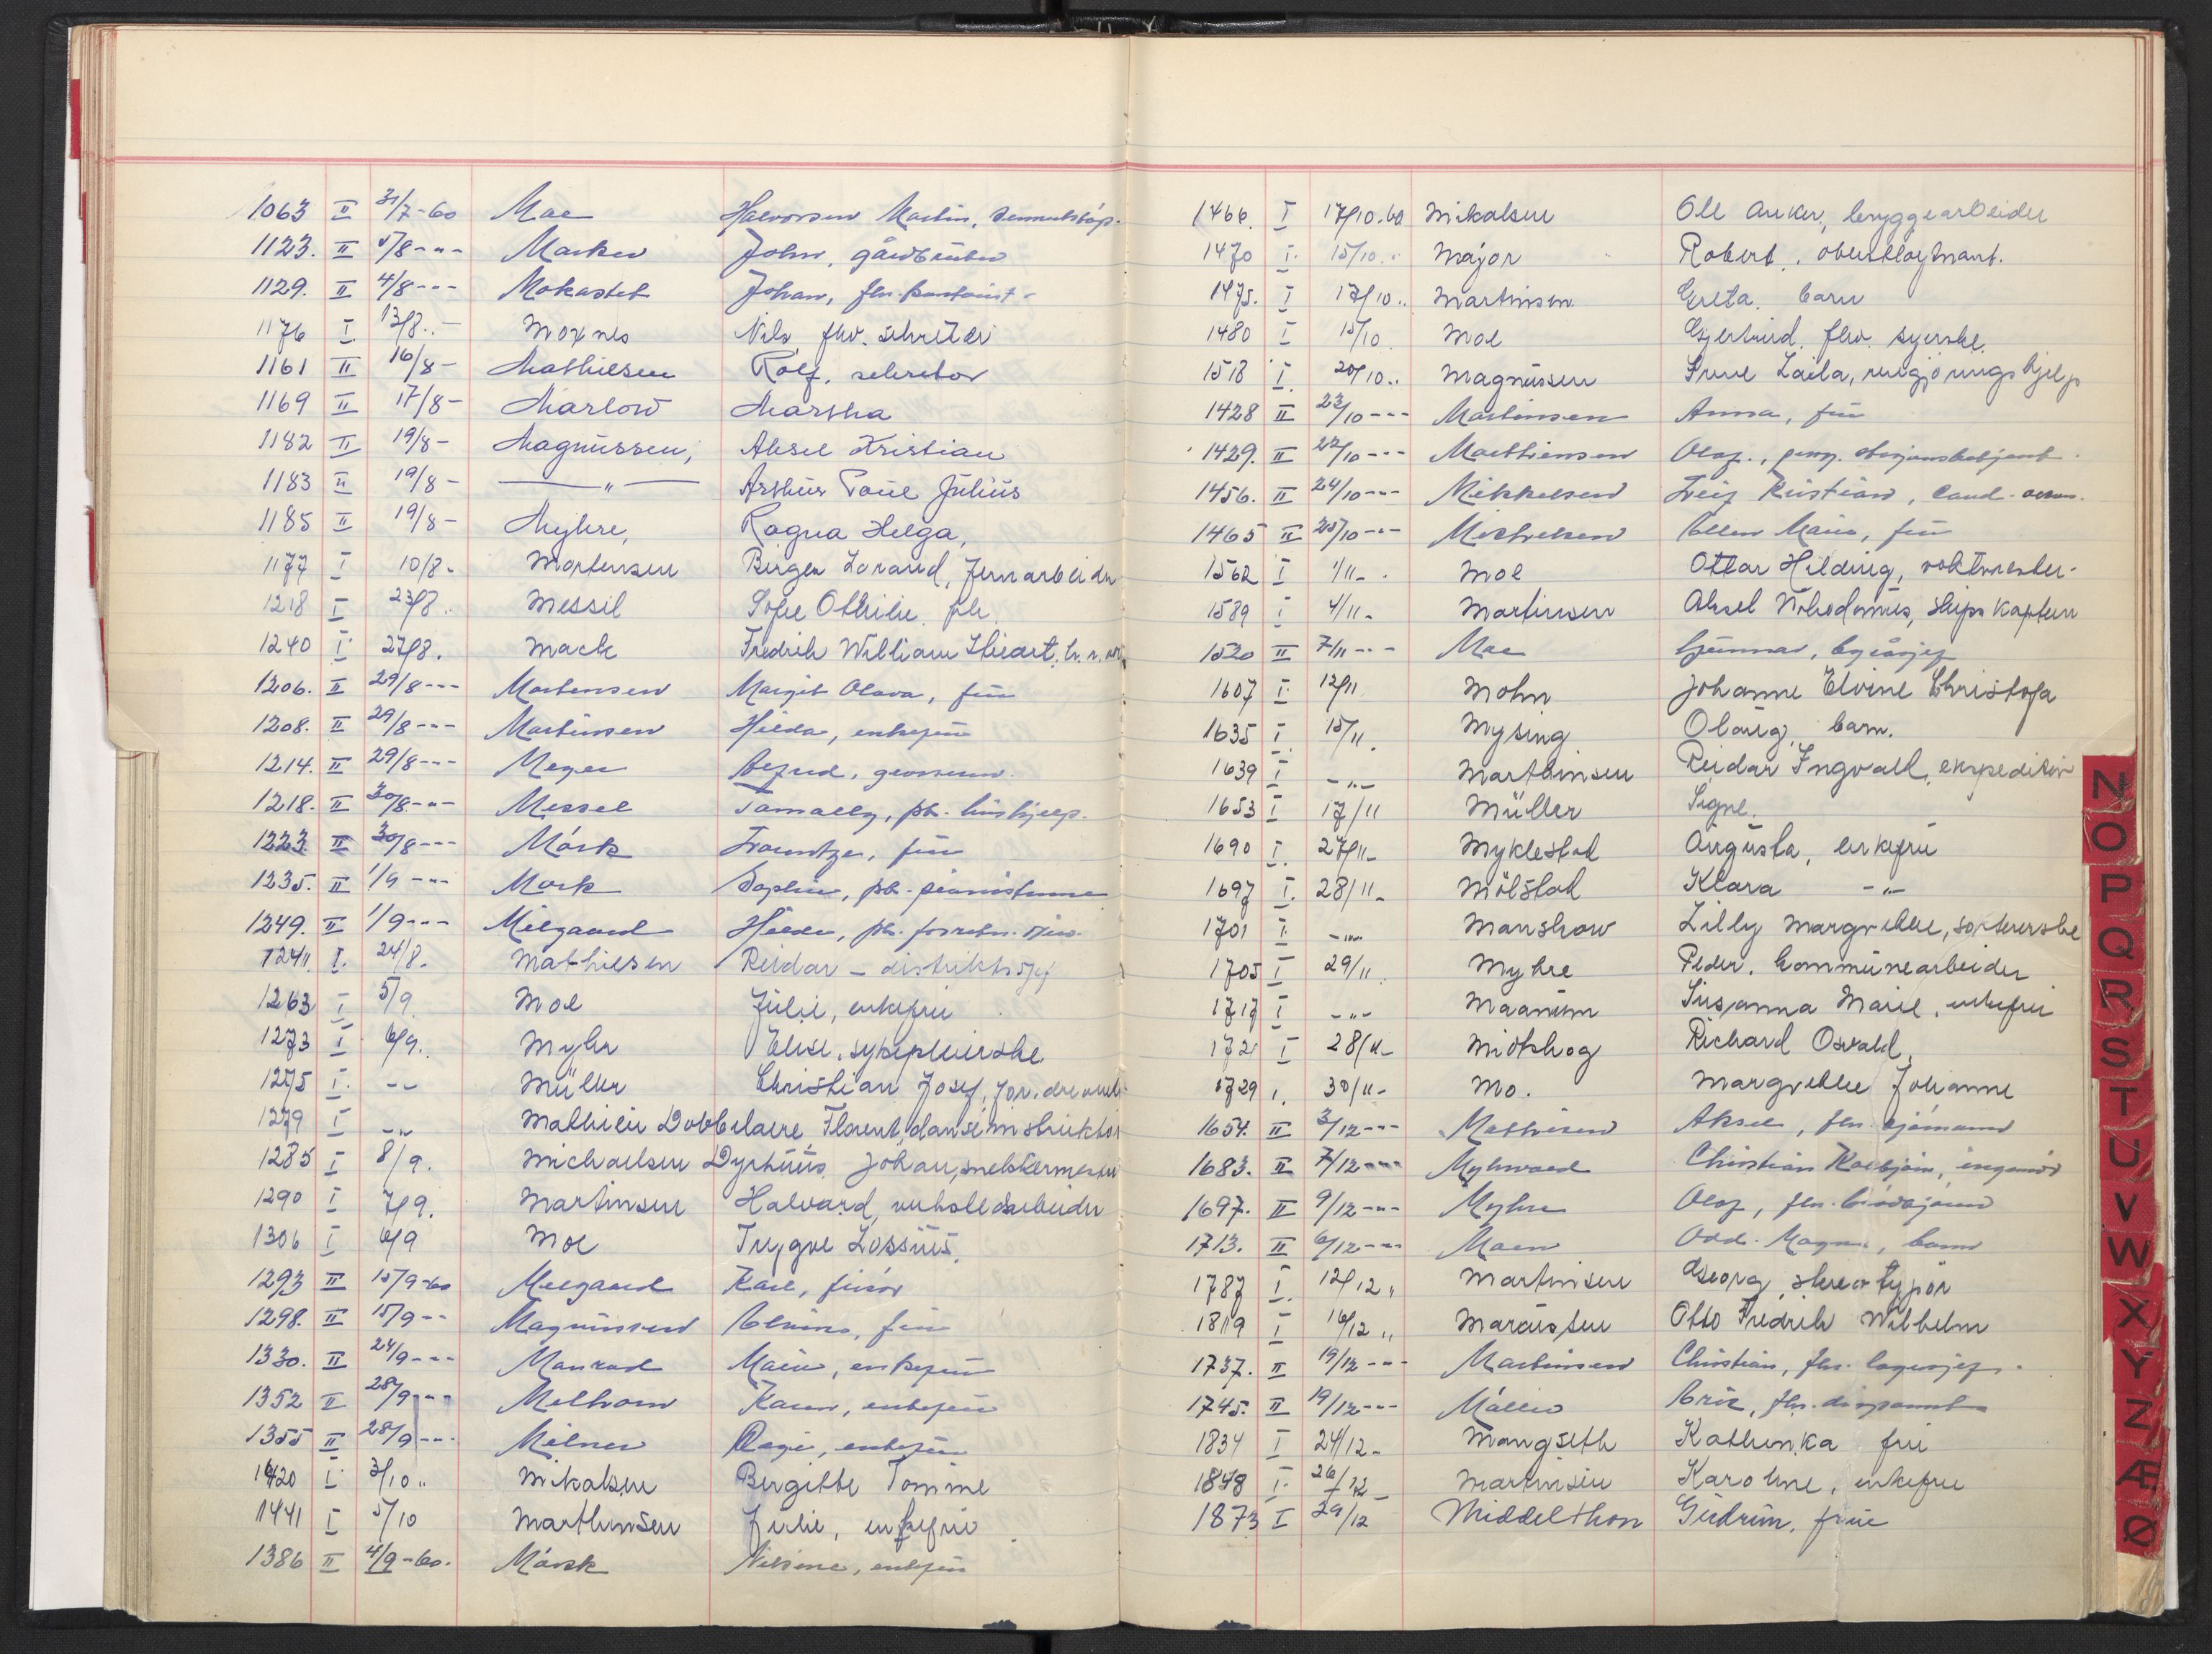 1063 II 31/7-60 Moe Halvorsen Martin,
1123. II 5/8-"- Marken John, gårdbruker
1129. II 4/8-"- Mokastet Johan, fhv.
1176 I 13/8 Moxnes Nils, fhv. sekretær
1161 II 16/8- Mathiesen Rolf, sekretær
1169 II 17/8- Marlow Martha
1182 II 19/8- Magnussen, Aksel Kristian
1183 II 19/8- —"— Arthur Paul Julius
1185 II 19/8- Myhre, Ragna Helga,
1177 I 10/8. Mortensen Birger Lorand, Jernarbeider
1218 I 23/8. Messel Sofie Othilie, frk.
1240 I 27/8. Mack Fredrik William Stuart, h.r.adv
1206. II 29/8-"- Mortensen Margit Olava, fru
1208. II 29/8-"- Martinsen Hilda, enkefru
1214. II 29/8-"- Meyer
1218. II 30/8-"- Messel frk. hushjelp.
1223 II 30/8-"- Mörk fru
1235. II 1/9-"- Mork Sophie, frk. pianistinne
1249. II 1/9-"- Melgaard Hilda, frk.
1241 I. 24/8. Mathiesen Reidar - distriktssjef
1263 I 5/9. Moe Julie, enkefru
1273 I 6/9. Myhr Elise, sykepleierske
1275 I. -"- Müller Christian Josef,
1279 I -"- Mathieu Dobbelaere Florent, danseinstruktör
1285 I 8/9. Michaelsen Dyrhuus Johan,
1290 I 7/9. Martinsen Halvard, verkstedarbeider
1306 I 6/9 Moe Trygve Lossius.
1293 II 15/9-60 Melgaard Karl, frisör
1298. II 15/9-"- Magnussen fru
1330. II 24/9-"- Manrad Marie, enkefru
1352 II 28/9-"- Melhorn Karen, enkefru
1355 II 28/9-"- Milner Dagny, enkefru
1420 I 3/10" Mikalsen Bergitte Tomine
1441 I 5/10 Marthinsen Julie, enkefru
1386 II 4/9-60. Mörk Nilsine, enkefru
1466. I 17/10.60 Mikalsen Ole Anker, bryggearbeider
1470 I. 15/10.. Major Robert, oberstløytnant.
1475. I 17/10.. Martinsen Greta, barn
1480 I 15/10. Moe Gjertrud, fhv. syerske.
1518 I. 20/10.. Magnussen Laila, rengjøringshjelp
1428 II 23/10-"- Martinsen Anna, fru
1429. II 22/10-"- Matthiessen Olaf,
1456. II 24/10-"- Mikkelsen Leif Kristian, cand.
1465 II 25/10-"- Michelsen Ellen Marie, fru
1562 I 1/11-. Moe Ottar Hilding, vaktmester.
1589 I 4/11- Martinsen Aksel Nikodemus, skipskaptein
1520 II 7/11-"- Moe Gunnar, byråsjef
1607 I. 12/11 Mohn Johanne Elvine Christofa
1635 I. 15/11. Mysing Olaug, barn.
1639 I -"- Marthinsen Reidar Ingvald, ekspeditör
1653 I 17/11 Müller Signe.
1690 I. 27/11- Myklestad Augusta, enkefru
1697 I. 28/11- Mölstad Klara -"-
1701 I -"- Manshow Lilly Margrethe, sortererske
1705 I 29/11. Myhre Peder, Kommunearbeider
1717 I -"- Maanum Susanna Marie, enkefru
1721 I 28/11- Midtskog Richard Osvald,
1729 I. 30/11- Mo. Margrethe Johanne
1654. II 3/12-"- Mathisen Aksel, fhv. sjömann
1683. II 7/12-"- Myhrvold Christian Kolbjörn, ingeniör
1697. II 9/12-"- Myhre Olaf, fhv.
1713. II 6/12-"- Moen Odd Magne, barn
1787 I. 12/12" Martinsen Georg, stereotypör
1819 I 16/12" Otto Fredrik Wilhelm
1737. II 19/12-"- Martinsen Christian, fhv. lagersjef.
1745. II 19/12-"- Möller Eric, fhv. disponent
1834 I 24/12- Mangseth Kathinka fru
1848 I. 26/12- Martinsen Karoline, enkefru
1873 I 29/12 Middelthon Gudrun, frue
N
O
P
Q
R
S
T
U
V
W
X
Y
Z
Æ
Ø